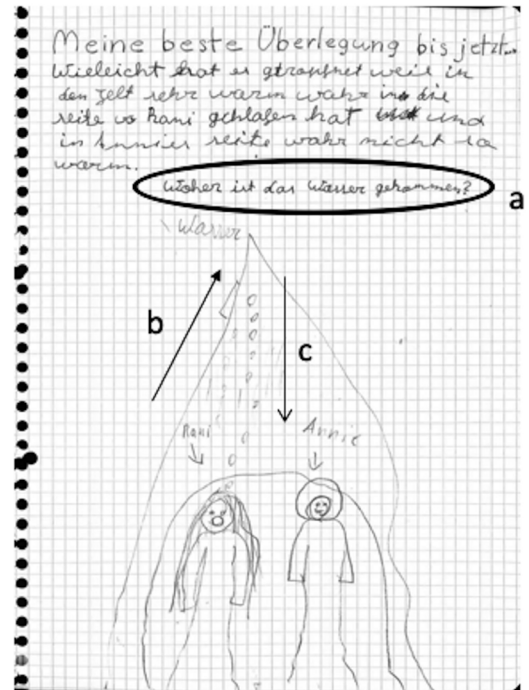 Meine beste Überlegung bis jetzt...
Wieleicht hat es getropfnet weil in
den Zelt sehr warm wahr in die
seite vo Rani geschlafen hat und
in Annies seite wahr nicht so
warm.
Woher ist das Wasser gekommen?
a
Wasser
b
c
Rani
Annie